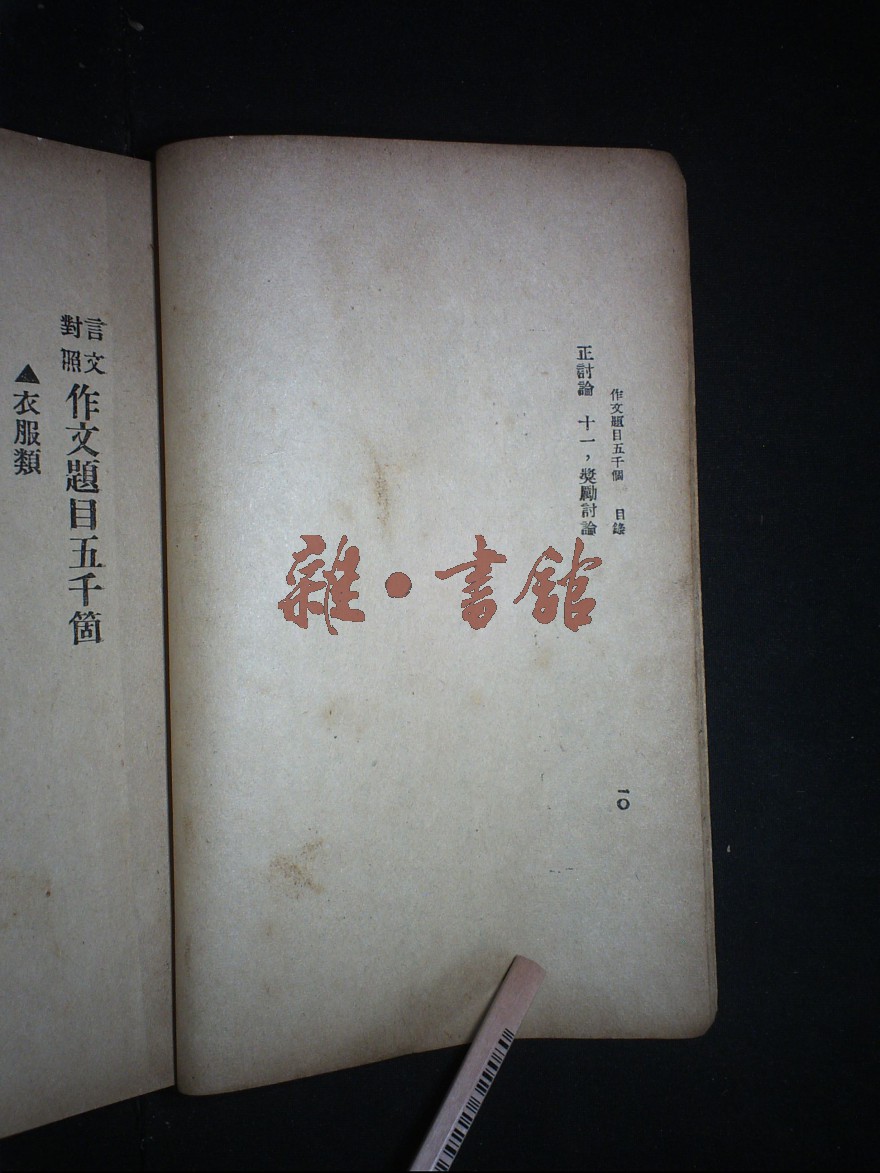 作文題目五千個 目錄
一〇
正討論 十一，獎勵討論
言文對照 作文題目五千箇
▲衣服類
雜·書館